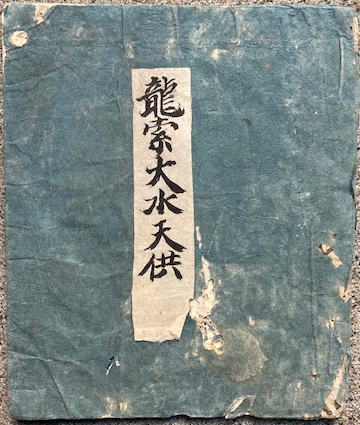 龍索大水天供